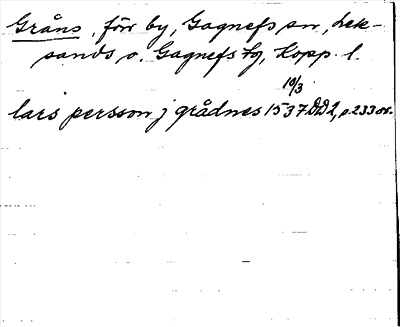 Gråns, förr by, Gagnefs sn, Lek-
sands o. Gagnefs tg, Kopp. l.
10/3
lars persson j grådnes 1537 DD2, s. 233